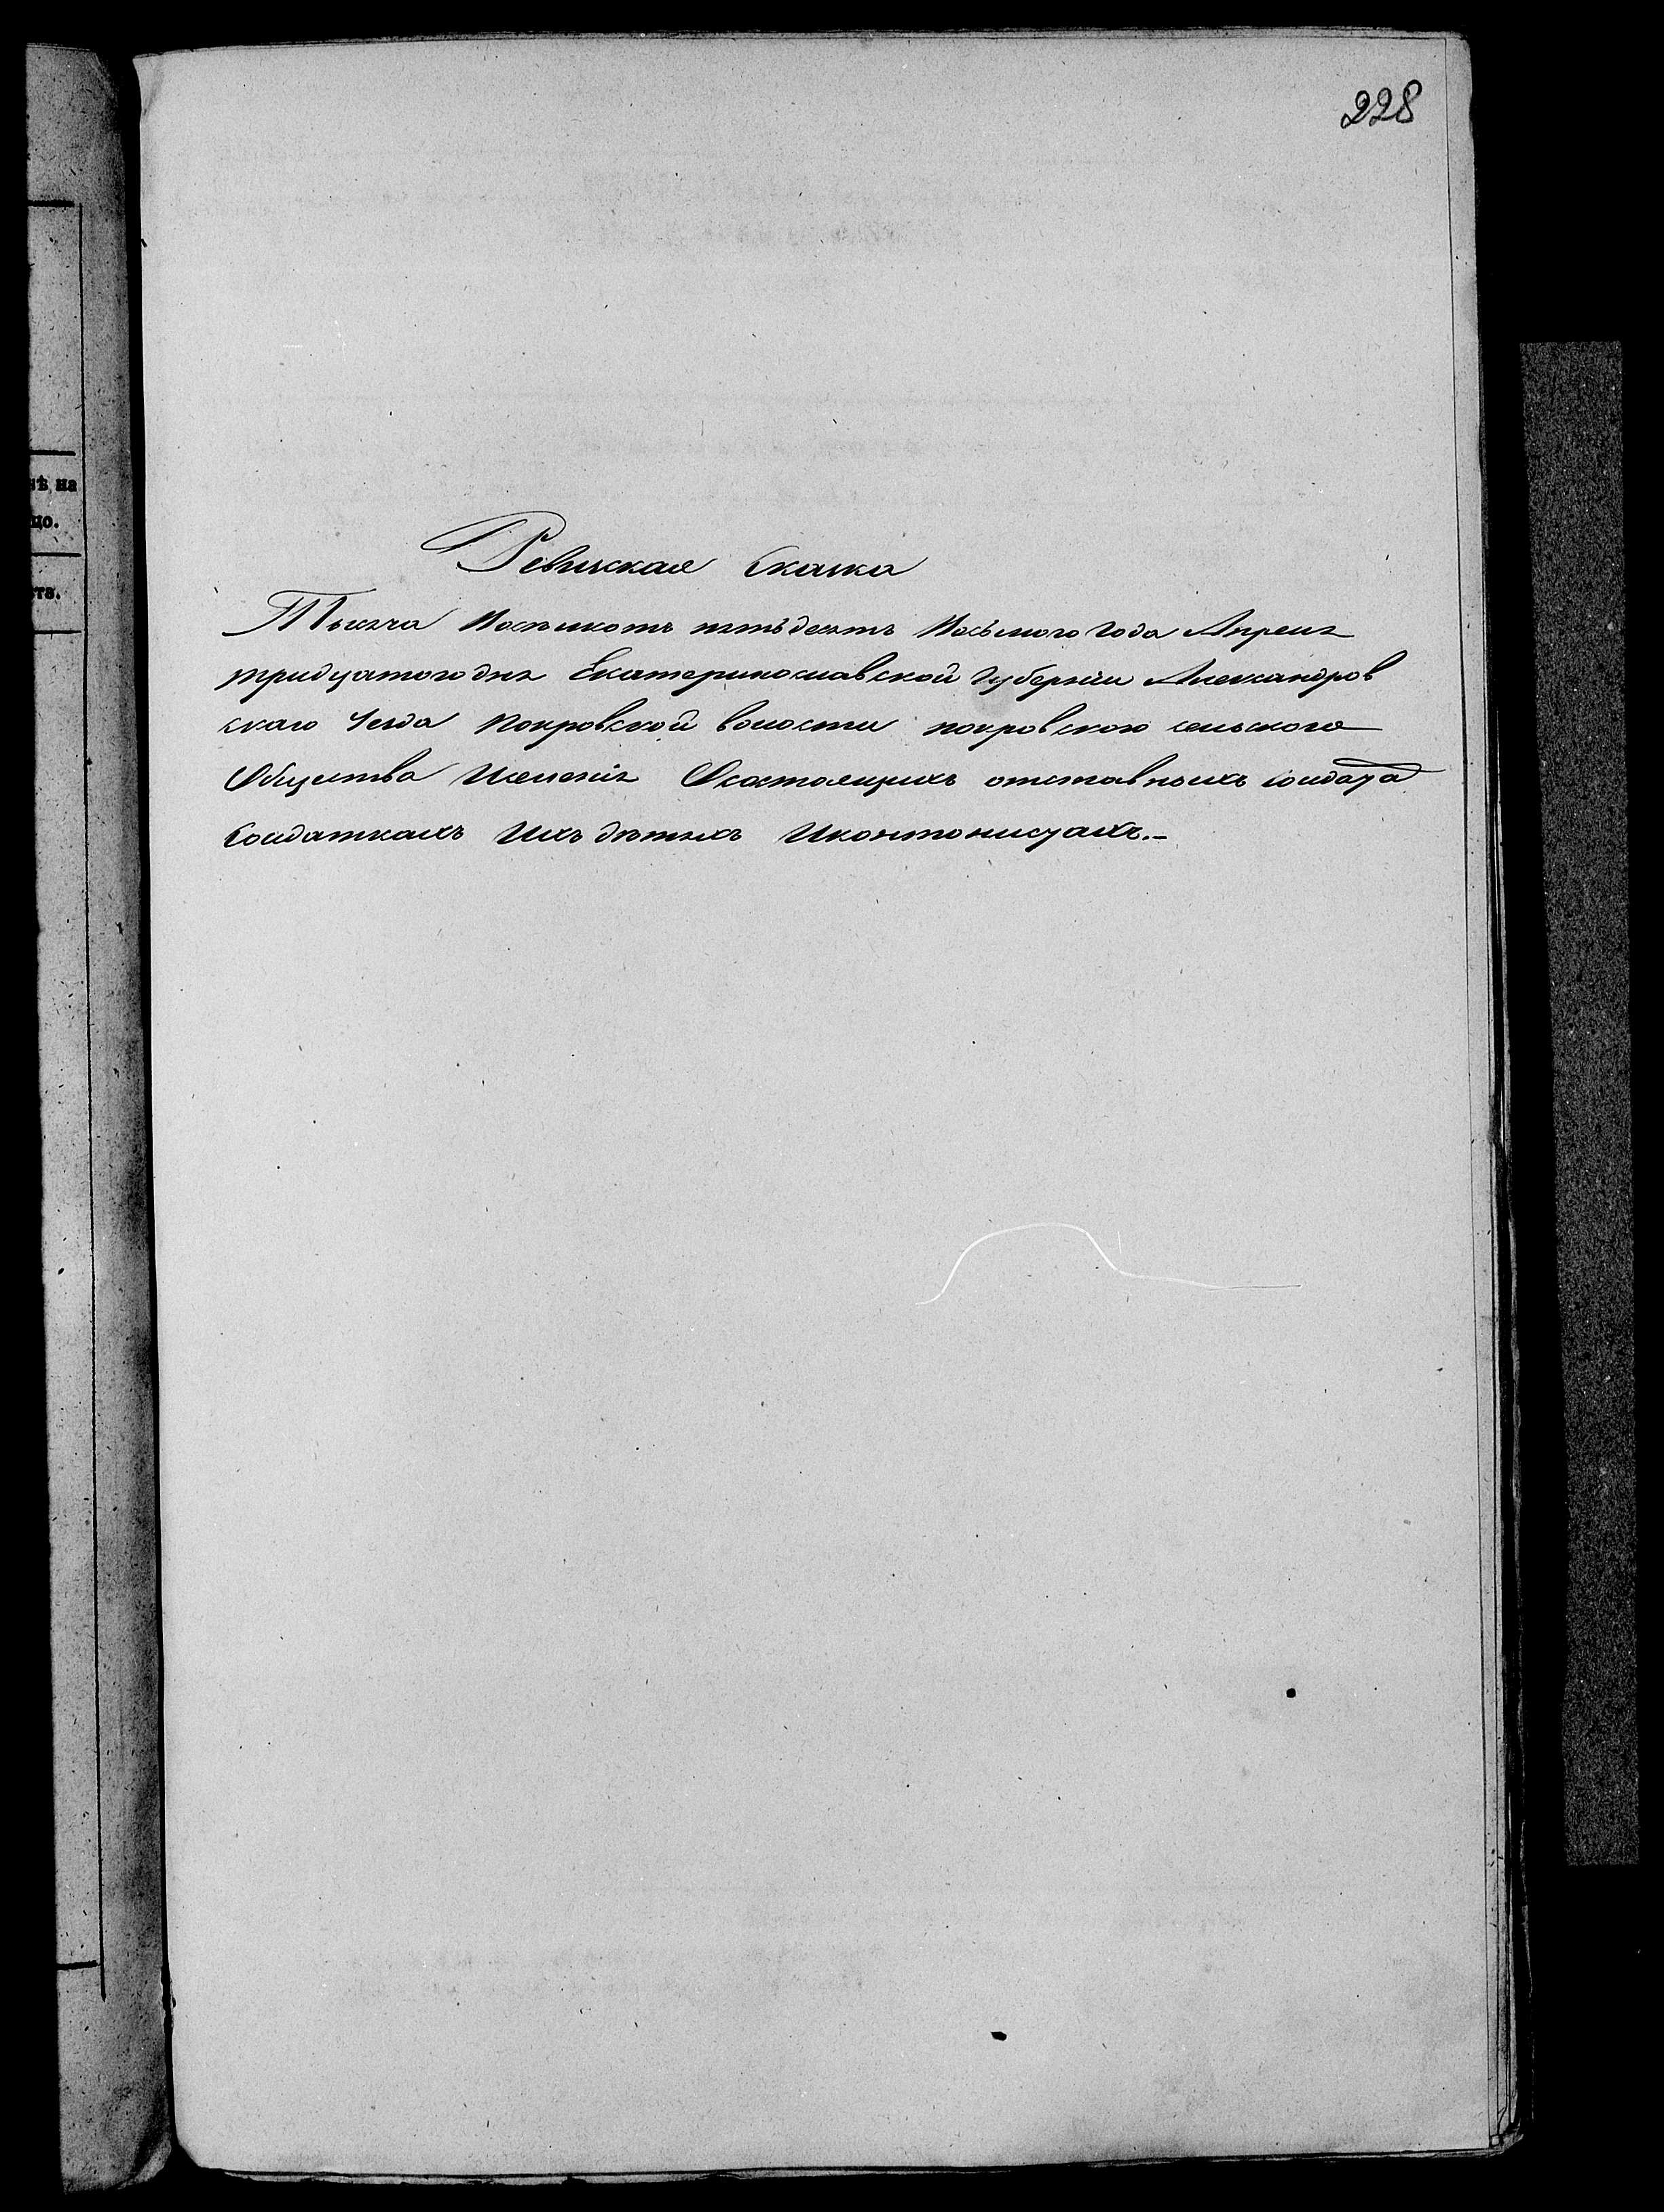 228
нѣ на
цо.
ста.
Ревизская Сказка
Тысяча Восемьсотъ пятьдесятъ Восьмого Года Апреля
тридцатого дня Екатеринославской Губерніи Александров
скаго Уезда Покровской волости покровского сельского
Общества Имения Осостоящихъ отставныхъ солдата
Солдаткахъ Ихъ дѣтяхъ Икантонистахъ.